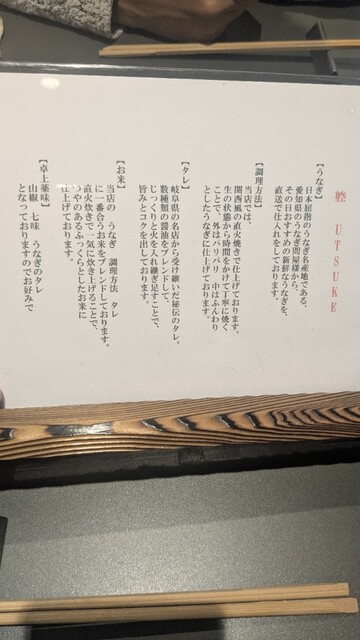 躾 UTSUKE
【うなぎ】
日本屈指のうなぎ名産地である、
愛知県のうなぎ問屋様から、
その日おすすめの新鮮なうなぎを、
直送で仕入れをしております。
【調理方法】
当店では、
関西風の直火焼きで仕上げております。
生の状態から時間をかけて丁寧に焼く
ことで、外はパリパリ 中はふんわり
としたうなぎに仕上げております。
【タレ】
岐阜県の名店から受け継いだ秘伝のタレ。
数種類の醤油をブレンドして、
じっくりと火を入れ継ぎ足すことで、
旨みとコクを出しております。
【お米】
当店の うなぎ 調理方法 タレ
に一番合うお米をブレンドしております。
直火炊きで一気に炊き上げることで、
つやのあるふっくらとしたお米に
仕上げております。
【卓上薬味】
山椒 七味 うなぎのタレ
となっておりますのでお好みで